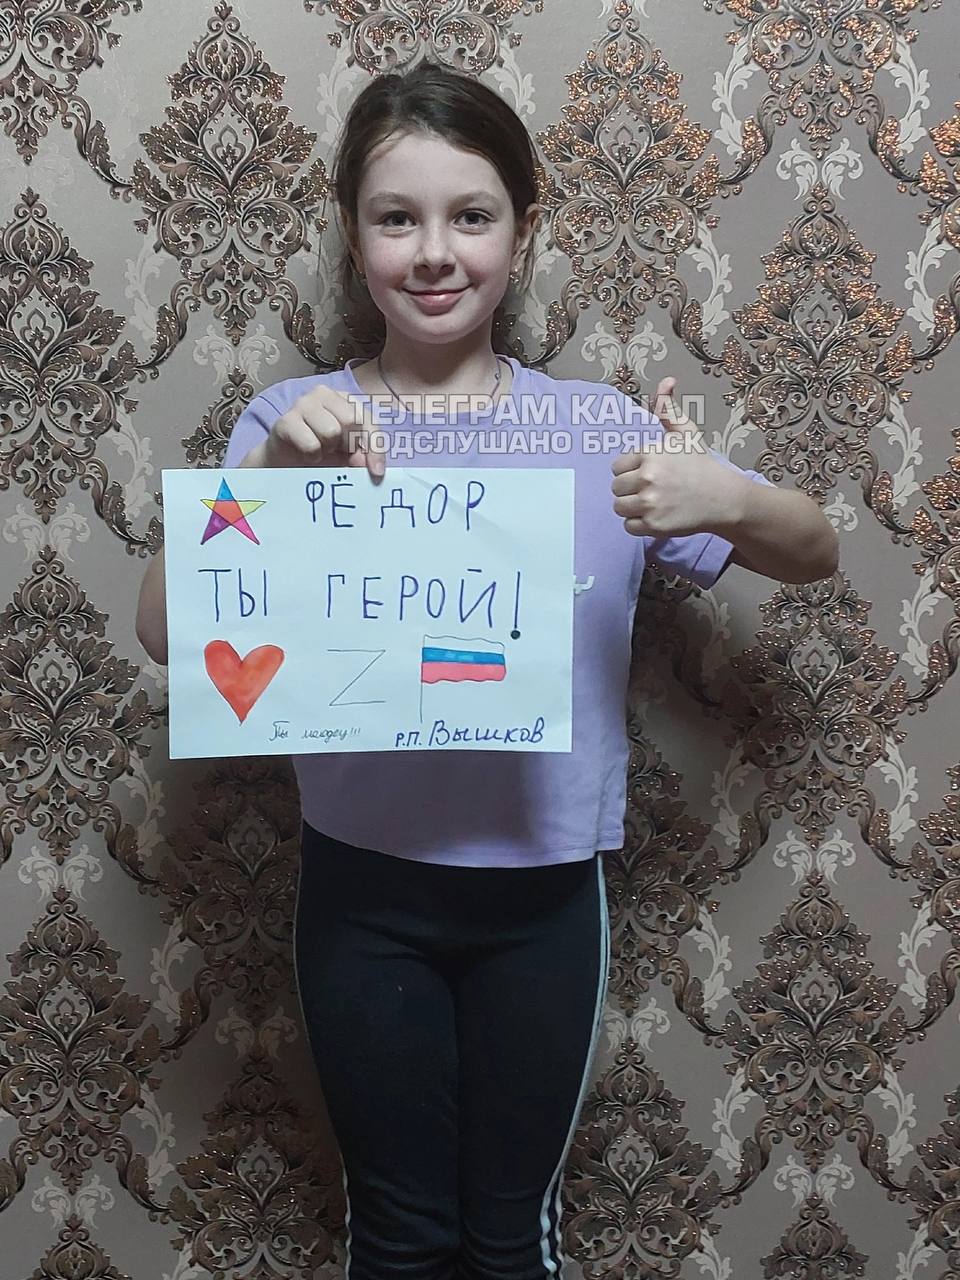 ТЕЛЕГРАМ КАНАЛ
ПОДСЛУШАНО БРЯНСК
ФЁДОР
ТЫ ГЕРОЙ!
Z
Ты молодец!!!
Р.П. Вышков